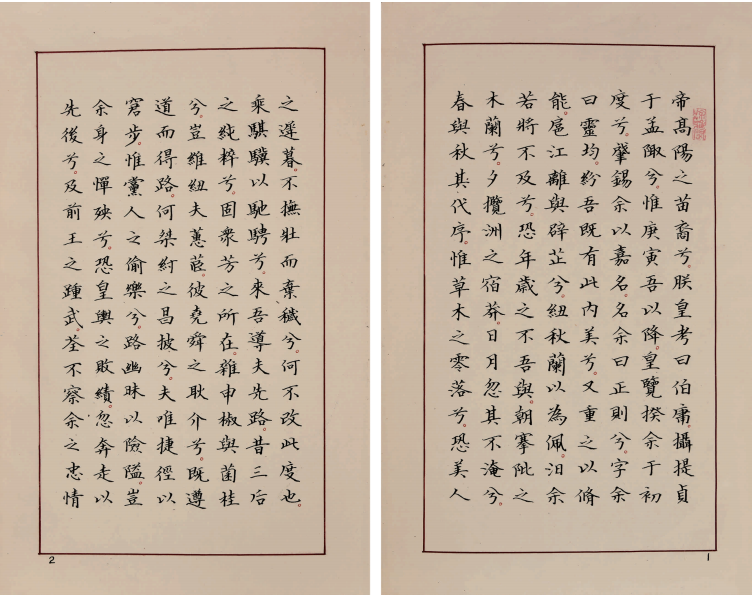 帝高陽之苗裔兮。朕皇考曰伯庸。攝提貞
于孟陬兮。惟庚寅吾以降。皇覽揆余于初
度兮。肇錫余以嘉名。名余曰正則兮。字余
曰靈均。紛吾既有此内美兮。又重之以脩
能。扈江離與辟芷兮。紉秋蘭以為佩。汩余
若將不及兮。恐年歲之不吾與。朝搴阰之
木蘭兮。夕攬洲之宿莽。日月忽其不淹兮。
春與秋其代序。惟草木之零落兮。恐美人
1
之遲暮。不撫壯而棄穢兮。何不改此度也。
乘騏驥以馳騁兮。來吾導夫先路。昔三后
之純粹兮。固衆芳之所在。雜申椒與菌桂
兮。豈維紉夫蕙茝。彼堯舜之耿介兮。既遵
道而得路。何桀紂之昌披兮。夫唯捷徑以
窘步。惟黨人之偷樂兮。路幽昧以險隘。豈
余身之憚殃兮。恐皇輿之敗績。忽奔走以
先後兮。及前王之踵武。荃不察余之忠情
2